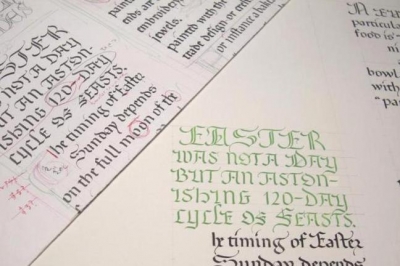 hundreds
embroider
jewels.
painted with the
trade design or te
or instance a bake
EASTER
WAS NOT A DAY
BUT AN ASTON-
ISHING 120-DAY
CYCLE OF FEASTS.
he timing of Easter
Sunday depends
on the full moon of the
EASTER
WAS NOT A DAY
BUT AN ASTON-
ISHING 120-DAY
CYCLE OF FEASTS.
he timing of Easter
Sunday depends
particular
food is
bowl
with
"pa